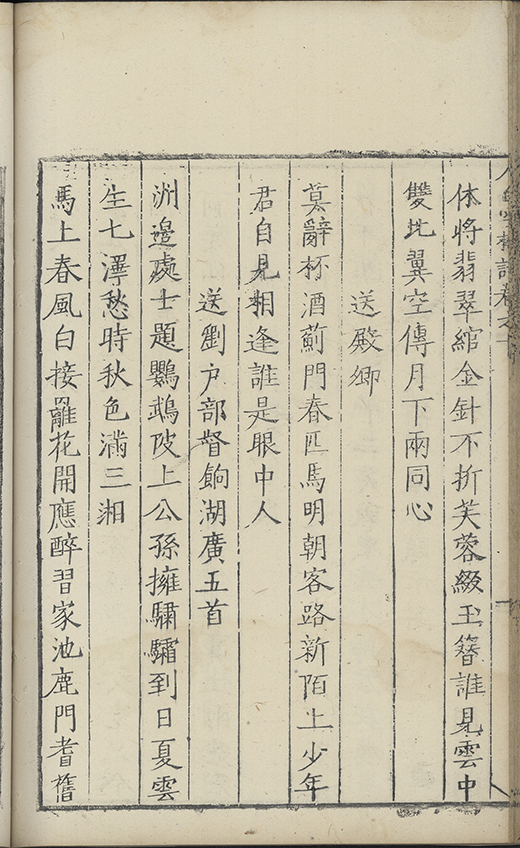 休將翡翠綰金針不折芙蓉綴玉簪誰見雲中
雙比翼空傳月下兩同心
送殿卿
莫辭杯酒薊門春匹馬明朝客路新陌上少年
君自見相逢誰是眼中人
送劉户部督餉湖廣五首
洲邊處士題鸚鵡陂上公孫擁驌驦到日夏雲
生七澤愁時秋色滿三湘
馬上春風白接䍦花開應醉習家池鹿門耆舊